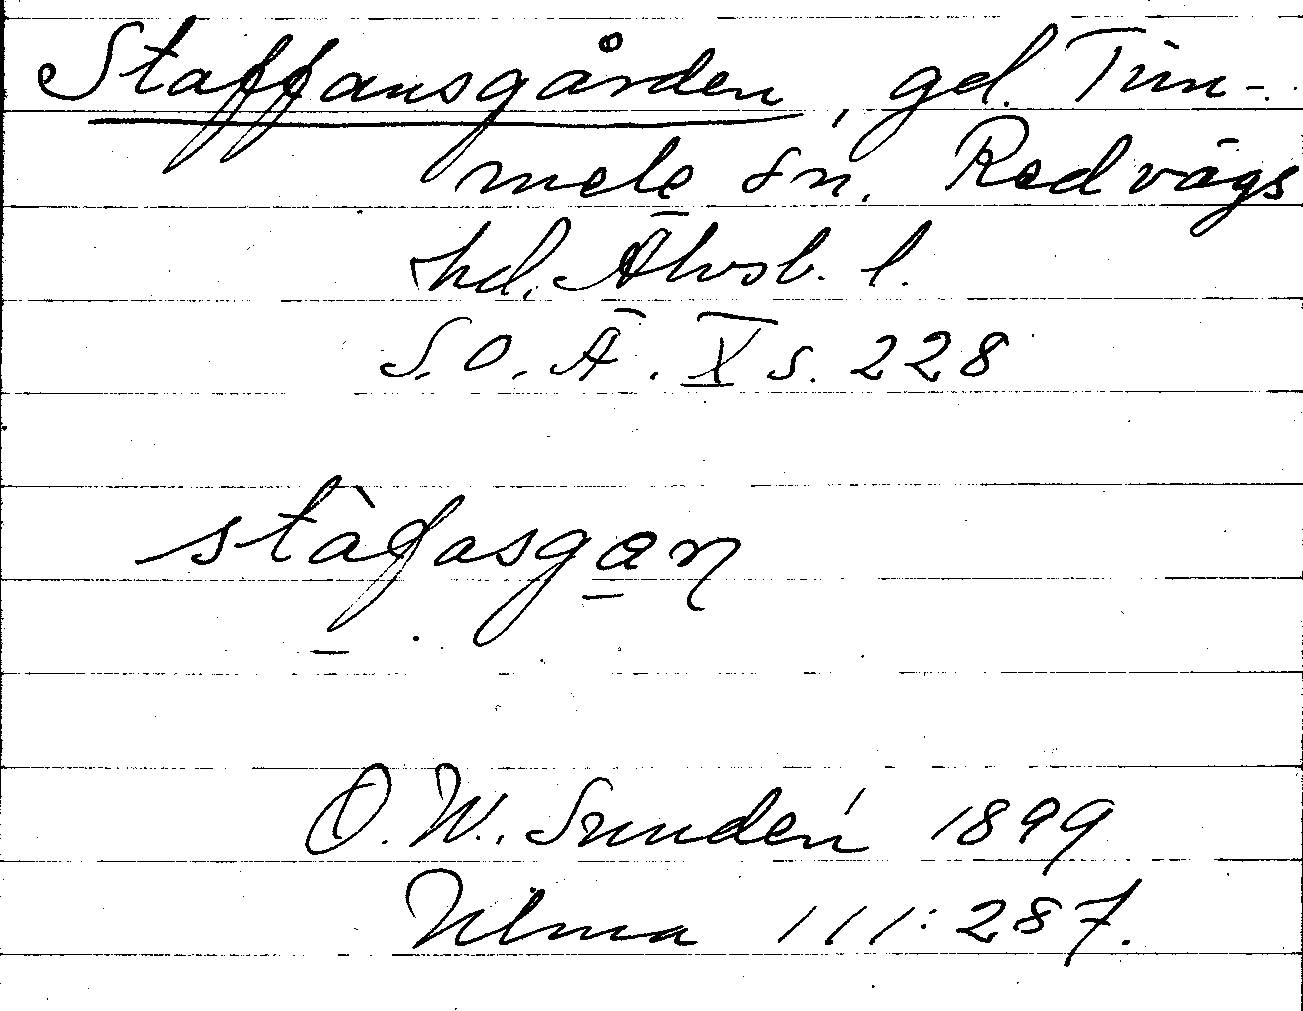 Staffansgården, gd. Tim-
mele sn. Redvägs
hd. Älvsb. l.
S. O. Ä. X s. 228
stàfasgan
O. W. Sundén 1899
Ulma 111:287.